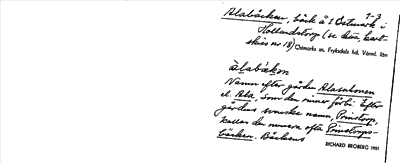 1-3
Alabäcken, bäck å S Östmark i
Hollandstorp (se dess, kart-
skiss nr 18) Östmarks sn, Fryksdals hd, Värml. län
àlabäkən
Namn efter gården Alasutonen
el. Ala, som den rinner förbi. Efter
gårdens svenska namn, Prinstorp,
kallas den numera ofta Prinstorps-
bäcken. Bäckens
RICHARD BROBERG 1951